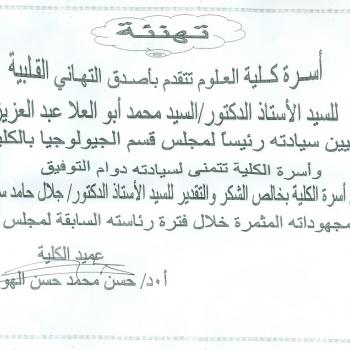 تهنئة
أسرة كلية العلوم تتقدم بأصدق التهاني القلبية
للسيد الأستاذ الدكتور/السيد محمد أبو العلا عبد العزيز
يين سيادته رئيساً لمجلس قسم الجيولوجيا بالكلي
وأسرة الكلية تتمنى لسيادته دوام التوفيق
أسرة الكلية بخالص الشكر والتقدير للسيد الأستاذ الدكتور/ جلال حامد س
مجهوداته المثمرة خلال فترة رئاسته السابقة لمجلس
عميد الكلية
أ٠د/ حسن محمد حسن الهو